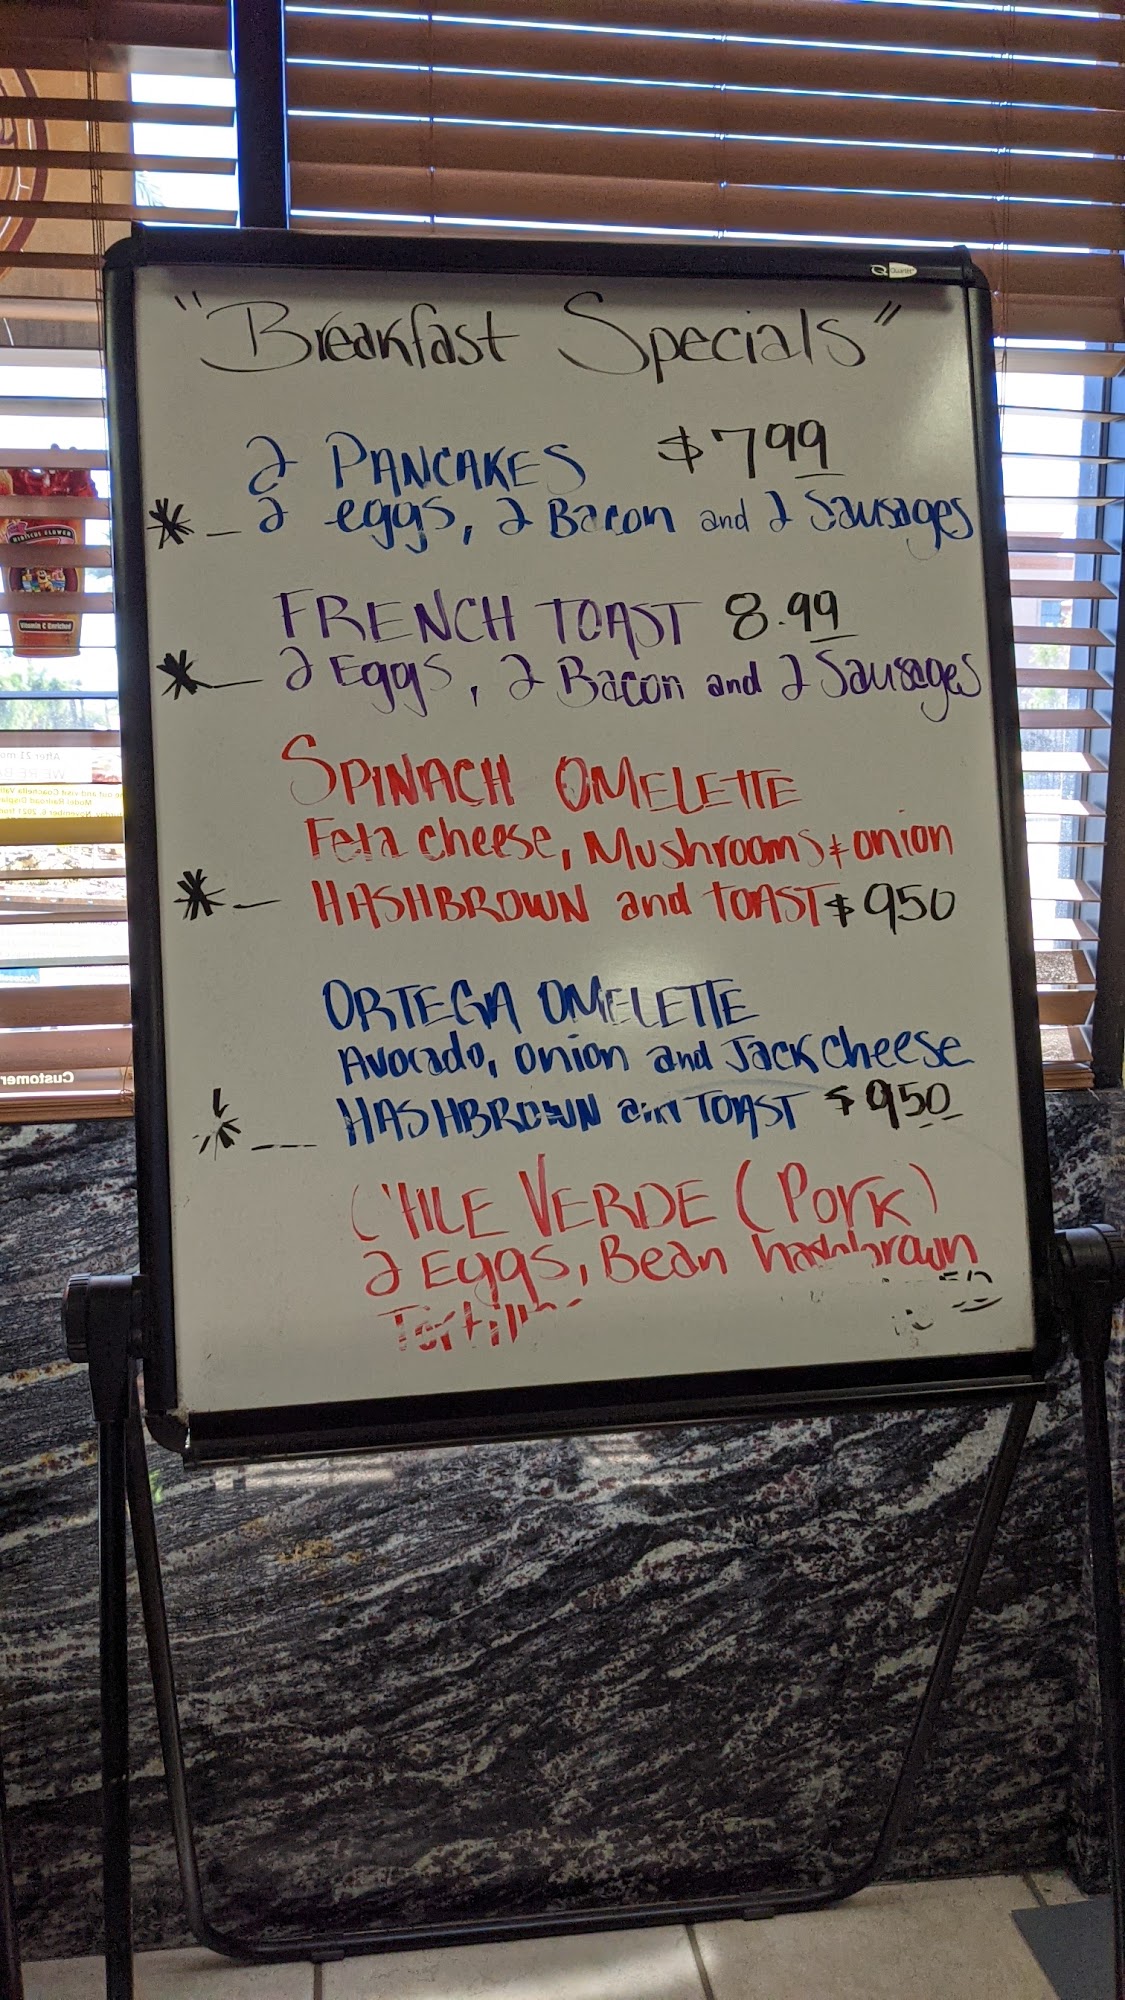 Quartet
"Breakfast Specials"
2 PANCAKES $799
* - 2 eggs, 2 Bacon and 2 Sausages
FRENCH TOAST 8.99
* - 2 Eggs, 2 Bacon and 2 Sausages
SPINACH OMELETTE
Feta cheese, Mushrooms & onion
* - HASHBROWN and TOAST $950
ORTEGA OMELETTE
Avocado, onion and Jack cheese
HASHBROWN TOAST $950
CHILE VERDE (Pork)
2 Eggs, Bean hashbrown
Vitamin C Enriched
Customer